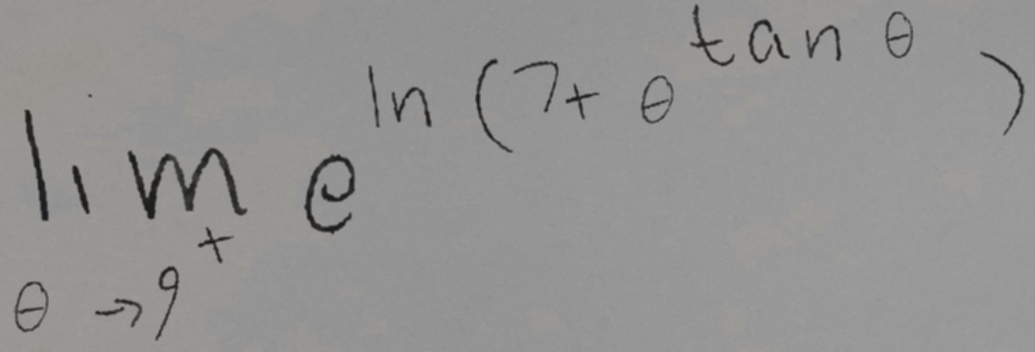 \lim_{\theta \to 9^+} e^{\ln(7+\theta^{\tan\theta})}